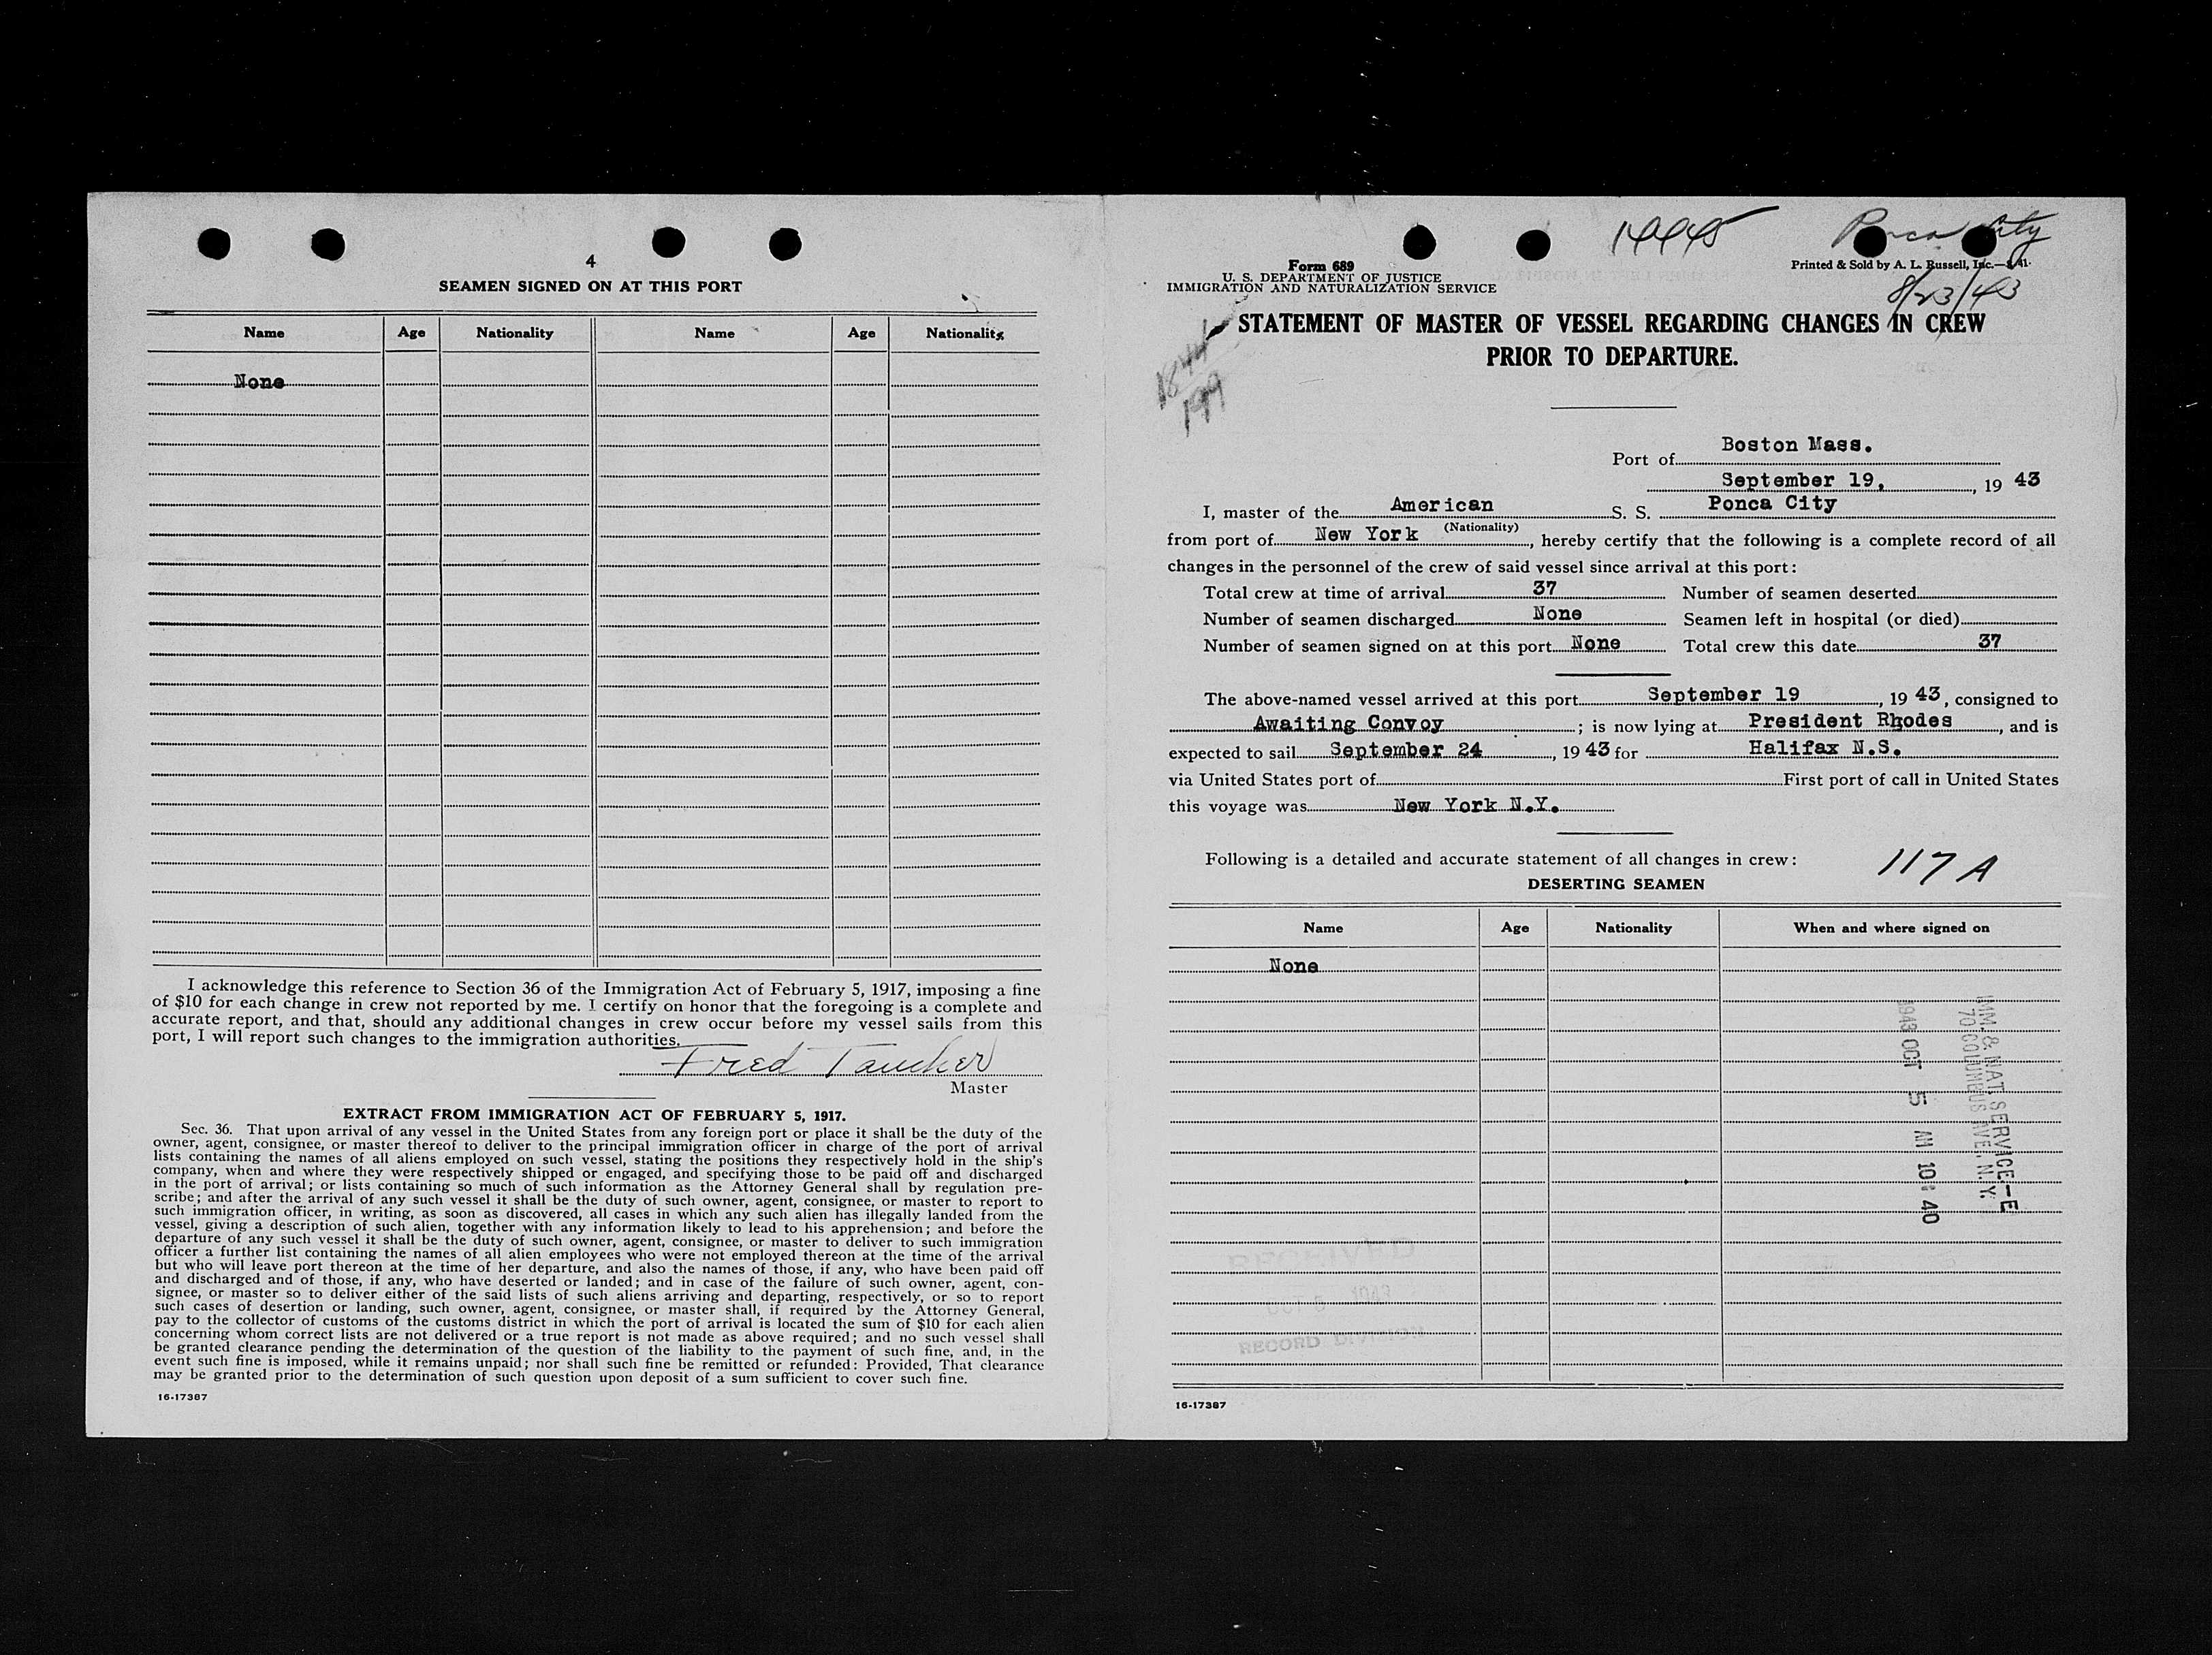 4
SEAMEN SIGNED ON AT THIS PORT
Name Age Nationality Name Age Nationality
None
I acknowledge this reference to Section 36 of the Immigration Act of February 5, 1917, imposing a fine
of $10 for each change in crew not reported by me. I certify on honor that the foregoing is a complete and
accurate report, and that, should any additional changes in crew occur before my vessel sails from this
port, I will report such changes to the immigration authorities.
Fred Taucher
Master
EXTRACT FROM IMMIGRATION ACT OF FEBRUARY 5, 1917.
Sec. 36. That upon arrival of any vessel in the United States from any foreign port or place it shall be the duty of the
owner, agent, consignee, or master thereof to deliver to the principal immigration officer in charge of the port of arrival
lists containing the names of all aliens employed on such vessel, stating the positions they respectively hold in the ship's
company, when and where they were respectively shipped or engaged, and specifying those to be paid off and discharged
in the port of arrival; or lists containing so much of such information as the Attorney General shall by regulation pre-
scribe; and after the arrival of any such vessel it shall be the duty of such owner, agent, consignee, or master to report to
such immigration officer, in writing, as soon as discovered, all cases in which any such alien has illegally landed from the
vessel, giving a description of such alien, together with any information likely to lead to his apprehension; and before the
departure of any such vessel it shall be the duty of such owner, agent, consignee, or master to deliver to such immigration
officer a further list containing the names of all alien employees who were not employed thereon at the time of the arrival
but who will leave port thereon at the time of her departure, and also the names of those, if any, who have been paid off
and discharged and of those, if any, who have deserted or landed; and in case of the failure of such owner, agent, con-
signee, or master so to deliver either of the said lists of such aliens arriving and departing, respectively, or so to report
such cases of desertion or landing, such owner, agent, consignee, or master shall, if required by the Attorney General,
pay to the collector of customs of the customs district in which the port of arrival is located the sum of $10 for each alien
concerning whom correct lists are not delivered or a true report is not made as above required; and no such vessel shall
be granted clearance pending the determination of the question of the liability to the payment of such fine, and, in the
event such fine is imposed, while it remains unpaid; nor shall such fine be remitted or refunded: Provided, That clearance
may be granted prior to the determination of such question upon deposit of a sum sufficient to cover such fine.
16-17387
Ponca City
Form 689
U. S. DEPARTMENT OF JUSTICE
IMMIGRATION AND NATURALIZATION SERVICE
Printed & Sold by A. L. Russell, Inc.
8/23/43
STATEMENT OF MASTER OF VESSEL REGARDING CHANGES IN CREW
PRIOR TO DEPARTURE.
199
Port of Boston Mass.
September 19, , 19 43
I, master of the American S. S. Ponca City
(Nationality)
from port of New York , hereby certify that the following is a complete record of all
changes in the personnel of the crew of said vessel since arrival at this port:
Total crew at time of arrival 37 Number of seamen deserted
Number of seamen discharged None Seamen left in hospital (or died)
Number of seamen signed on at this port None Total crew this date 37
The above-named vessel arrived at this port September 19 , 19 43, consigned to
Awaiting Convoy ; is now lying at President Rhodes , and is
expected to sail September 24 , 19 43 for Halifax N.S.
via United States port of First port of call in United States
this voyage was New York N.Y.
Following is a detailed and accurate statement of all changes in crew:
117 A
DESERTING SEAMEN
Name Age Nationality When and where signed on
None
IMM. & NAT. SERVICE-E
70 COLUMBUS AVE. N.Y.
1943 OCT 5 AM 10:40
RECEIVED
OCT 5 1943
RECORD DIVISION
16-17387